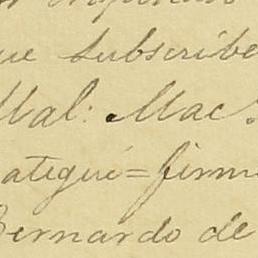 ue subscribe
Mal: Mac
ategui=firm
Bernardo de